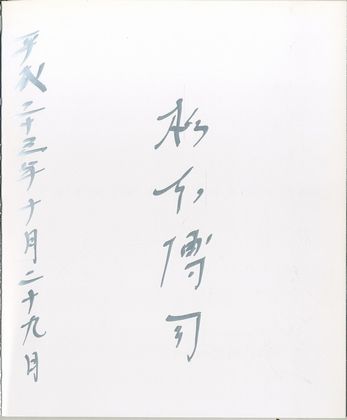 平成二十三年十月二十九日
松下博司